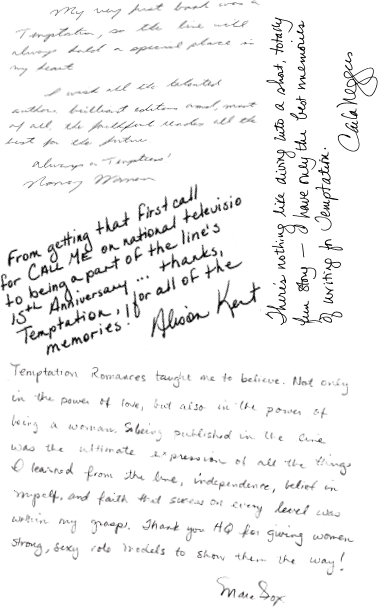 My very first book was a
Temptation, so the line will
always hold a special place in
my heart.
I wish all the talented
authors, brilliant editors and, most
of all, the faithful readers all the
best for the future.
Always a Temptress!
Nancy Warren
There's nothing like diving into a short, totally
fun story — I have only the best memories
of writing for Temptation.
Carla Neggers
From getting that first call
for CALL ME on national televisio
to being a part of the line's
15th Anniversary... thanks,
Temptation, for all of the
memories!
Alison Kent
Temptation Romances taught me to believe. Not only
in the power of love, but also in the power of
being a woman. Being published in the line
was the ultimate expression of all the things
I learned from the line, independence, belief in
myself, and faith that success on every level was
within my grasp. Thank you HQ for giving women
strong, sexy role models to show them the way!
Mara Fox